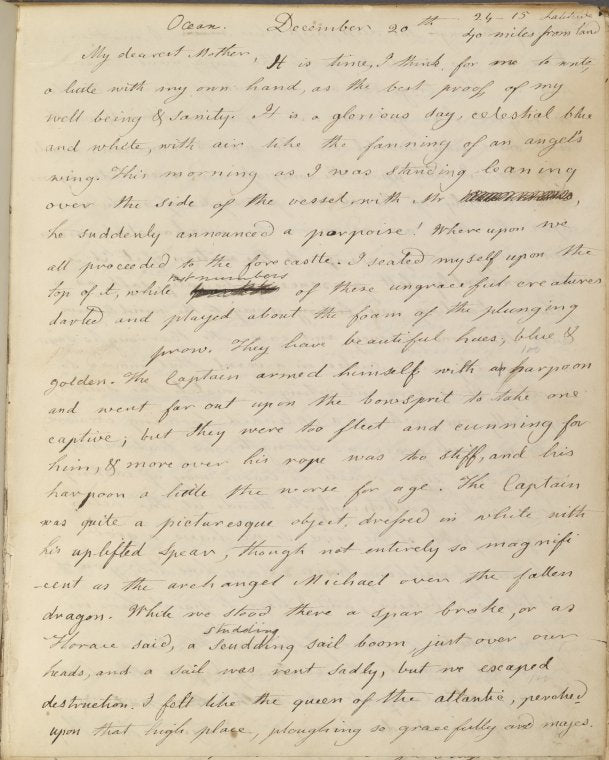 Ocean. December 20th 24 - 15 latitude
40 miles from land
My dearest Mother, It is time, I think for me to write,
a little with my own hand, as the best proof of my
well being & sanity. It is a glorious day, celestial blue
and white, with air like the fanning of an angel's
wing. This morning as I was standing leaning
over the side of the vessel, with Mr
he suddenly announced a porpoise! Whereupon we
all proceeded to the forecastle. I seated myself upon the
vast numbers
top of it, while of these ungraceful creatures
darted and played about the foam of the plunging
prow. They have beautiful hues, blue &
golden. The Captain armed himself with a harpoon
and went far out upon the bowsprit to take one
captive; but they were too fleet and cunning for
him, & more over his rope was too stiff, and his
harpoon a little the worse for age. The Captain
was quite a picturesque object, dressed in white with
his uplifted spear, though not entirely so magnifi
-cent as the archangel Michael over the fallen
dragon. While we stood there a spar broke, or as
studding
Horace said, a scudding sail boom just over our
heads, and a sail was rent sadly, but we escaped
destruction. I felt like the queen of the atlantic, perched
upon that high place, ploughing so gracefully and majes-